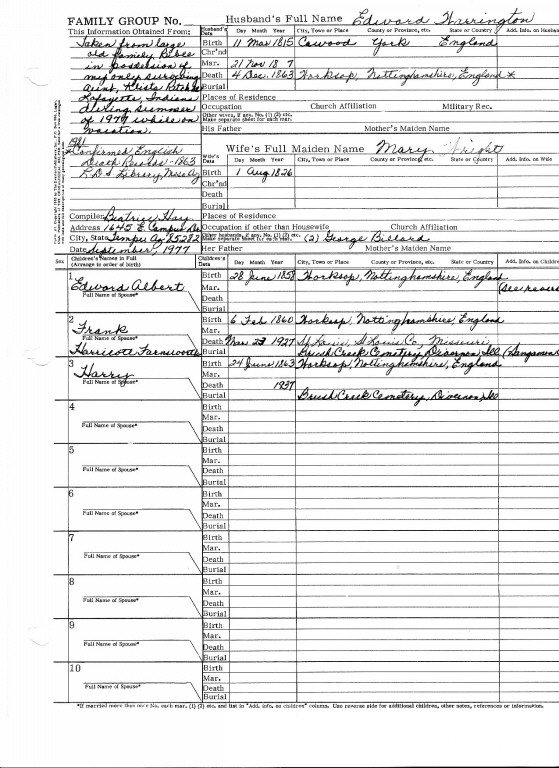 FAMILY GROUP No.
Husband's Full Name Edward Harrington
This Information Obtained From:
Taken from large
old family Bible
in possession of
my only surviving
aunt,
Lafayette, Indiana
during summer
of 1977 while on
vacation.
1981
Confirmed English
Death Records - 1863
L.D.S. Library, Mesa Az
Husband's Data Day Month Year City, Town or Place County or Province, etc. State or Country Add. Info. on Husband
Birth 11 Mar 1815 Cawood York England
Chr'nd
Mar. 21 Nov 18 7
Death 4 Dec. 1863 Worksop, Nottinghamshire, England *
Burial
Places of Residence
Occupation Church Affiliation Military Rec.
Other wives, if any. No. (1) (2) etc.
Make separate sheet for each mar.
His Father Mother's Maiden Name
Wife's Full Maiden Name Mary Wright
Wife's Data Day Month Year City, Town or Place County or Province, etc. State or Country Add. Info. on Wife
Birth 1 Aug 1826
Chr'nd
Death
Burial
Compiler Beatrice Hay
Address 1645 E. Campus
City, State Tempe, Az 85282
Date September, 1977
Places of Residence
Occupation if other than Housewife Church Affiliation
Other husbands, if any. No. (1) (2) etc.
Make separate sheet for each mar. (2) George Billard
Her Father Mother's Maiden Name
Sex Children's Names in Full
(Arrange in order of birth)
Children's Data Day Month Year City, Town or Place County or Province, etc. State or Country Add. Info. on Children
1 Edward Albert
Full Name of Spouse*
Birth 28 June 1858 Worksop, Nottinghamshire, England
Mar. (See
Death
Burial
2 Frank
Full Name of Spouse*
Harriott Farnsworth
Birth 6 Feb 1860 Worksop, Nottinghamshire, England
Mar.
Death Mar 23 1927 St. Louis, St Louis Co, Missouri
Burial Brush Creek Cemetery, Divernon, Ill (Sangamon
3 Harry
Full Name of Spouse*
Birth 24 June 1863 Worksop, Nottinghamshire, England
Mar.
Death 1937
Burial Brush Creek Cemetery, Divernon, Ill
4
Full Name of Spouse*
Birth
Mar.
Death
Burial
5
Full Name of Spouse*
Birth
Mar.
Death
Burial
6
Full Name of Spouse*
Birth
Mar.
Death
Burial
7
Full Name of Spouse*
Birth
Mar.
Death
Burial
8
Full Name of Spouse*
Birth
Mar.
Death
Burial
9
Full Name of Spouse*
Birth
Mar.
Death
Burial
10
Full Name of Spouse*
Birth
Mar.
Death
Burial
*If married more than once No. each mar. (1) (2) etc. and list in "Add. info. on children" column. Use reverse side for additional children, other notes, references or information.